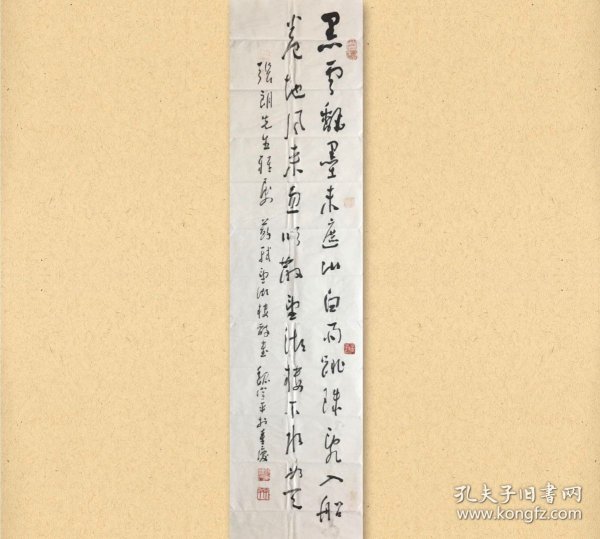 黑云翻墨未遮山白雨跳珠乱入船
卷地风来忽吹散望湖楼下水如天
张朗先生雅属 苏轼望湖楼醉书 于重庆
孔夫子旧书网
www.kongfz.com